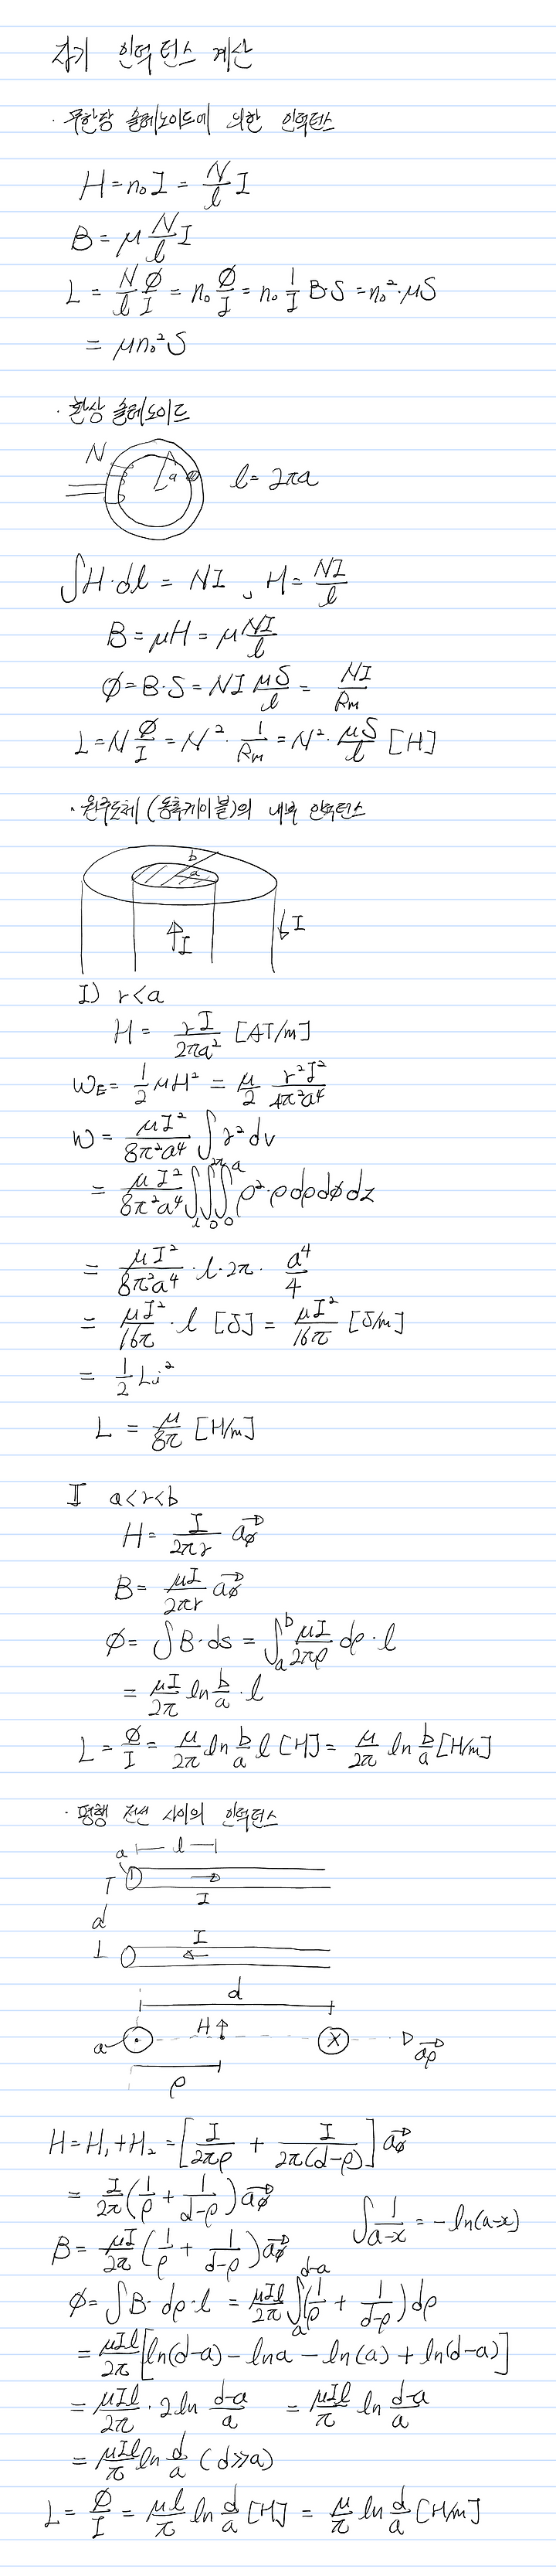 자기 인덕턴스 계산
· 무한장 솔레노이드에 의한 인덕턴스
H = n₀I = N/l I
B = μ N/l I
L = N/l ∅/I = n₀ ∅/I = n₀ 1/I B·S = n₀²·μS
= μn₀²S
· 환상 솔레노이드
N a l = 2πa
∫H·dl = NI , H = NI/l
B = μH = μ NI/l
∅ = B·S = NI μS/l = NI/Rm
L = N ∅/I = N²· 1/Rm = N²· μS/l [H]
· 원주도체 (동축케이블)의 내부 인덕턴스
b
a
I I
I) r<a
H = rI/2πa² [AT/m]
WE = 1/2 μH² = μ/2 r²I²/4π²a⁴
W = μI²/8π²a⁴ ∫ r² dv
= μI²/8π²a⁴ ∫l ∫₀^2π ∫₀^a ρ²·ρ dρ d∅ dz
= μI²/8π²a⁴ · l · 2π · a⁴/4
= μI²/16π · l [J] = μI²/16π [J/m]
= 1/2 Li²
L = μ/8π [H/m]
II a<r<b
H = I/2πr a∅
B = μI/2πr a∅
∅ = ∫B·ds = ∫ₐ^b μI/2πρ dρ · l
= μI/2π ln b/a · l
L = ∅/I = μ/2π ln b/a l [H] = μ/2π ln b/a [H/m]
· 평행 전선 사이의 인덕턴스
a l
I
d
I
d
a H X aρ
ρ
H = H₁+H₂ = [I/2πρ + I/2π(d-ρ)] a∅
= I/2π (1/ρ + 1/d-ρ) a∅
∫ 1/a-x = -ln(a-x)
B = μI/2π (1/ρ + 1/d-ρ) a∅
∅ = ∫B· dρ · l = μIl/2π ∫ₐ^d-a (1/ρ + 1/d-ρ) dρ
= μIl/2π [ln(d-a) - lna - ln(a) + ln(d-a)]
= μIl/2π · 2 ln d-a/a = μIl/π ln d-a/a
= μIl/π ln d/a (d≫a)
L = ∅/I = μl/π ln d/a [H] = μ/π ln d/a [H/m]